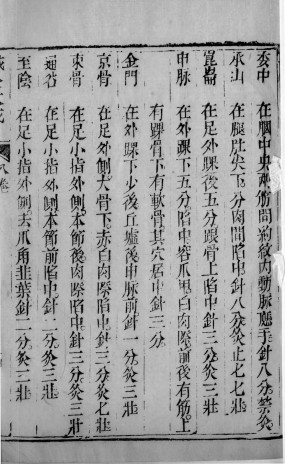 委中　在膕中央兩筋間約紋內動脉應手針八分禁灸
承山　在腿肚尖下分肉間陷中針八分灸止七七壯
崑崙　在足外踝後五分跟骨上陷中針三分灸三壯
申脉　在外踝下五分陷中容爪甲白肉際前後有筋上
有踝骨下有軟骨其穴居中針三分
金門　在外踝下少後丘墟後申脉前針一分灸三壯
京骨　在外側大骨下赤白肉際陷中針三分灸七壯
束骨　在足小指外側本節後肉際陷中針三分灸三壯
通谷　在足小指外側本節前陷中針二分灸三壯
至陰　在足小指外側去爪角韭葉針二分灸三壯
八卷